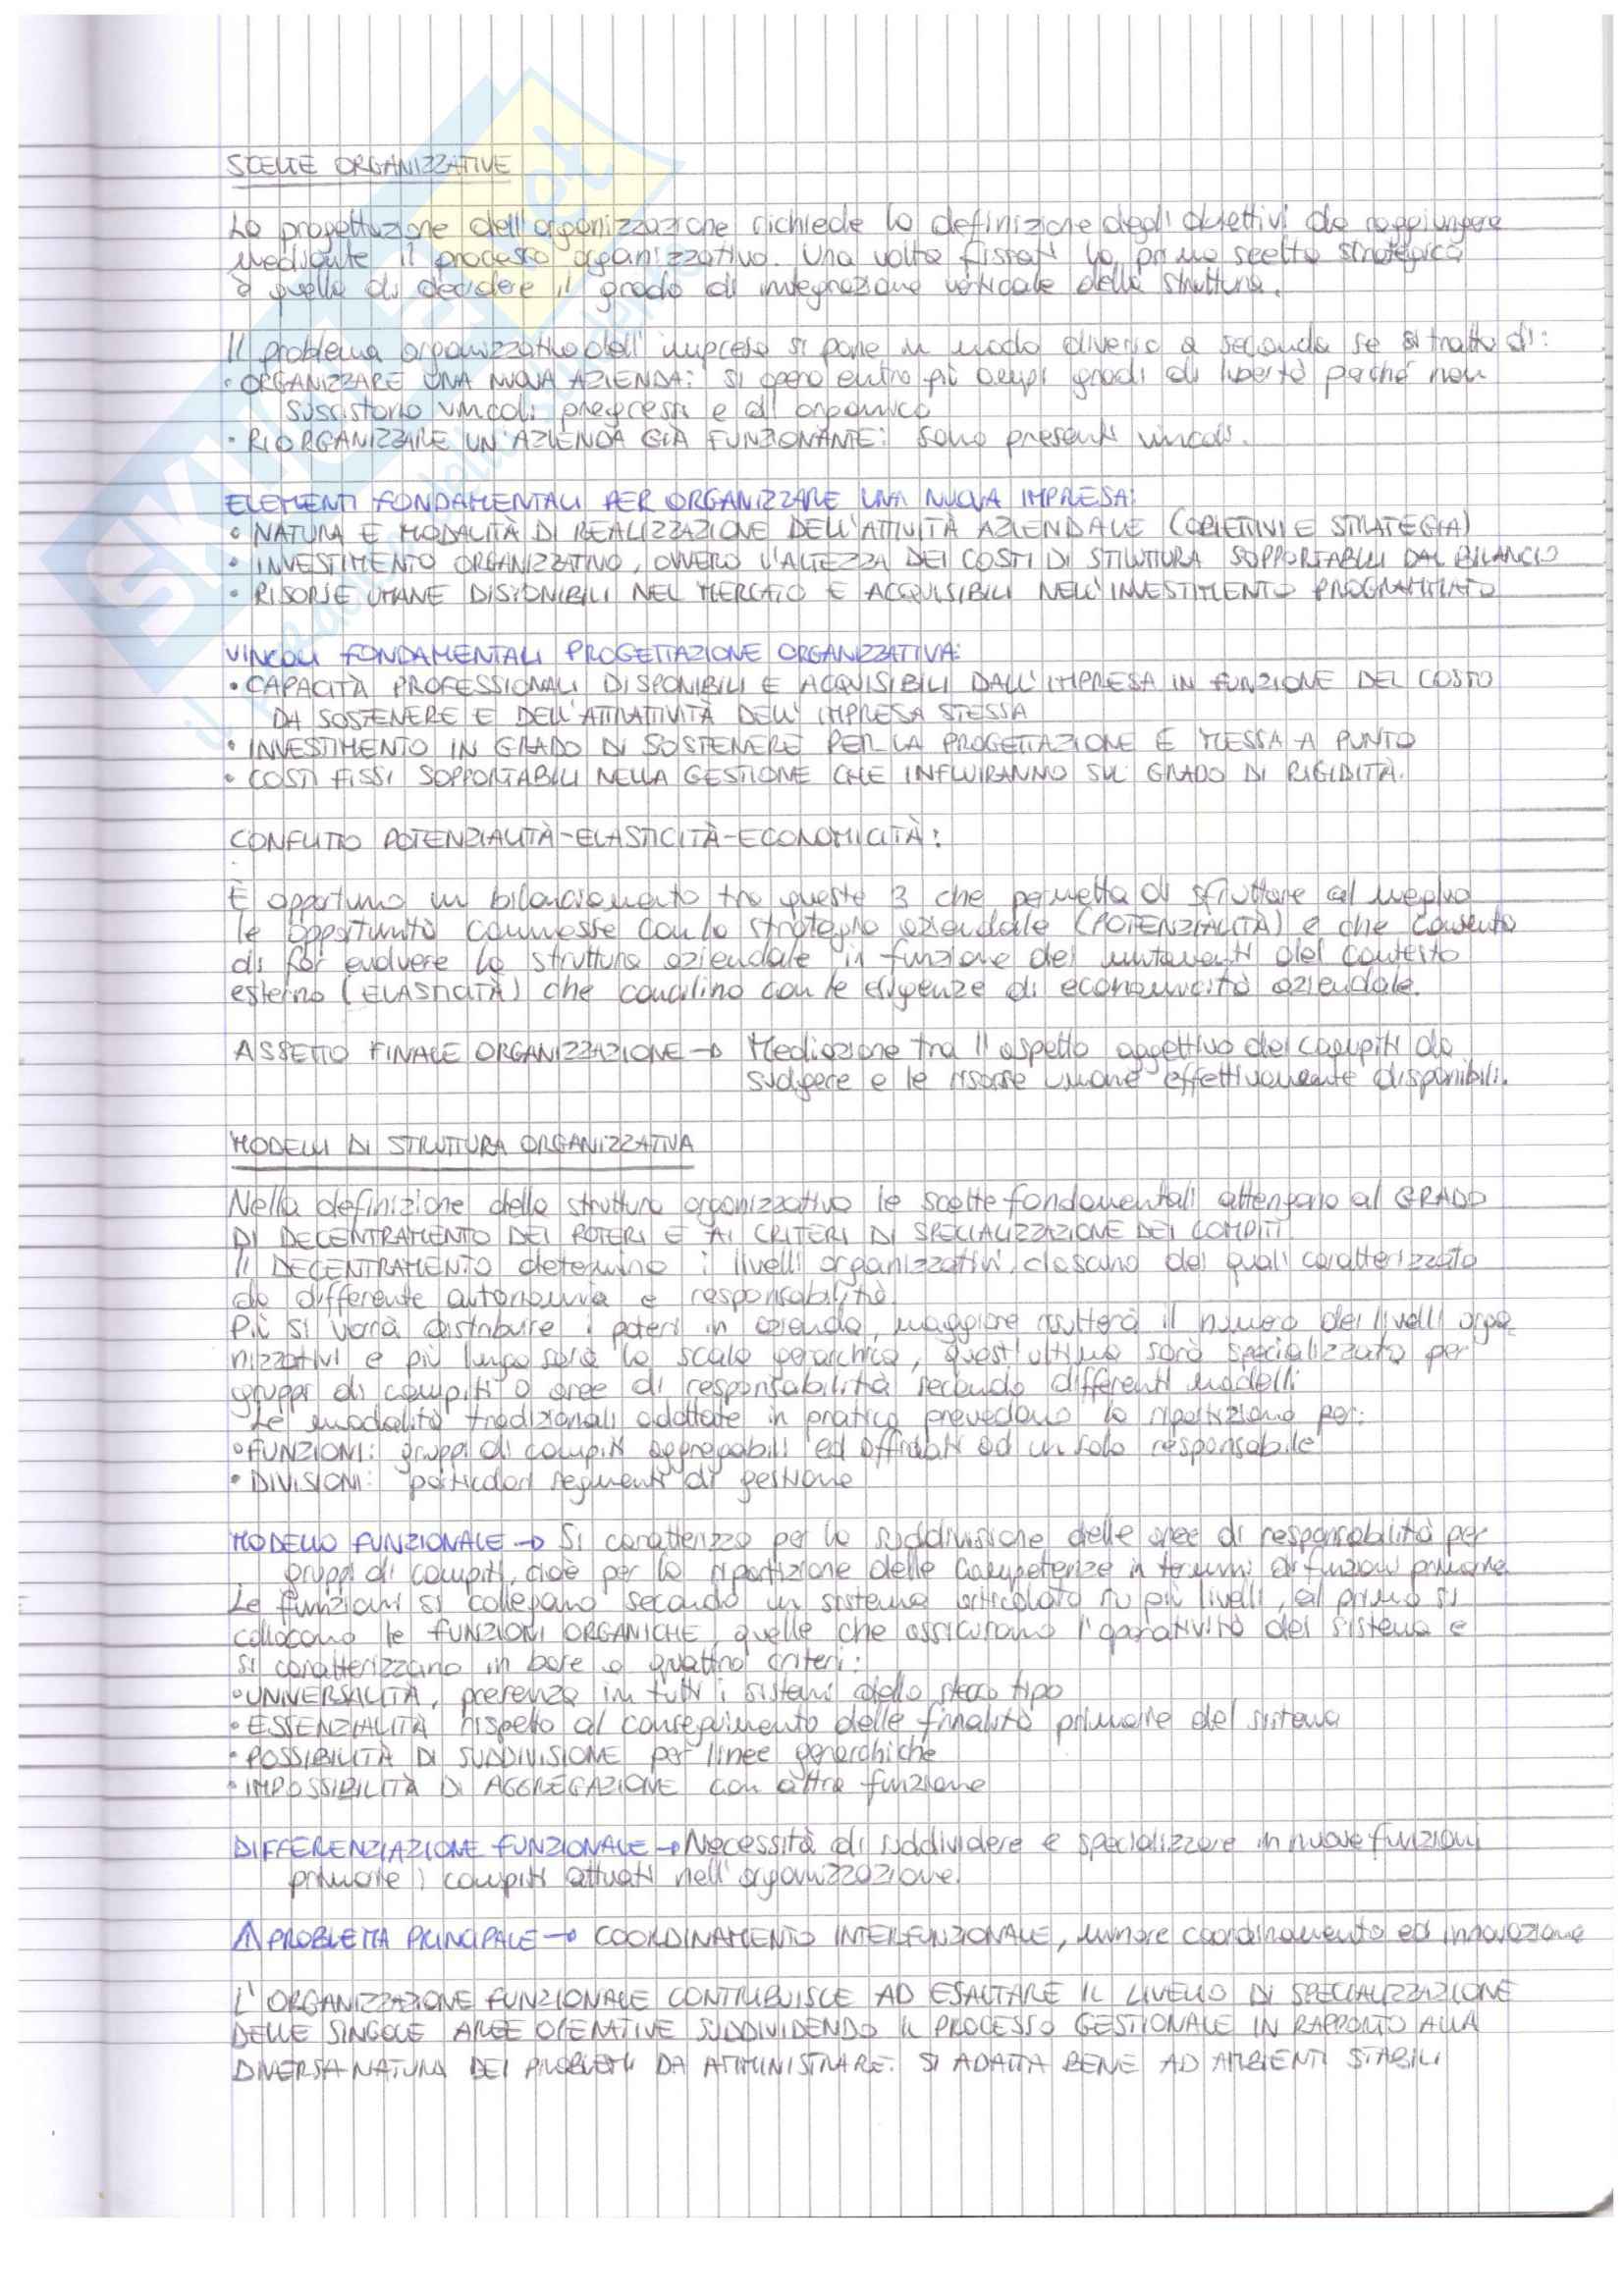 SCELTE ORGANIZZATIVE
La progettazione dell'organizzazione richiede la definizione degli obiettivi da raggiungere
mediante il processo organizzativo. Una volta fissati la prima scelta strategica
è quella di decidere il grado di integrazione verticale della struttura.
Il problema organizzativo dell'impresa si pone in modo diverso a seconda se si tratta di:
• ORGANIZZARE UNA NUOVA AZIENDA: si opera entro più ampi gradi di libertà perché non
sussistono vincoli pregressi e di organico
• RIORGANIZZARE UN'AZIENDA GIÀ FUNZIONANTE: sono presenti vincoli.
ELEMENTI FONDAMENTALI PER ORGANIZZARE UNA NUOVA IMPRESA:
• NATURA E MODALITÀ DI REALIZZAZIONE DELL'ATTIVITÀ AZIENDALE (OBIETTIVI E STRATEGIA)
• INVESTIMENTO ORGANIZZATIVO, OVVERO L'ALTEZZA DEI COSTI DI STRUTTURA SOPPORTABILI DAL BILANCIO
• RISORSE UMANE DISPONIBILI NEL MERCATO E ACQUISIBILI NELL'INVESTIMENTO PROGRAMMATO
VINCOLI FONDAMENTALI PROGETTAZIONE ORGANIZZATIVA:
• CAPACITÀ PROFESSIONALI DISPONIBILI E ACQUISIBILI DALL'IMPRESA IN FUNZIONE DEL COSTO
DA SOSTENERE E DELL'ATTRATTIVITÀ DELL'IMPRESA STESSA
• INVESTIMENTO IN GRADO DI SOSTENERE PER LA PROGETTAZIONE E MESSA A PUNTO
• COSTI FISSI SOPPORTABILI NELLA GESTIONE CHE INFLUIRANNO SUL GRADO DI RIGIDITÀ.
CONFLITTO POTENZIALITÀ-ELASTICITÀ-ECONOMICITÀ:
È opportuno un bilanciamento tra queste 3 che permetta di sfruttare al meglio
le opportunità connesse con la strategia aziendale (POTENZIALITÀ) e che consenta
di far evolvere la struttura aziendale in funzione dei mutamenti del contesto
esterno (ELASTICITÀ) che concilino con le esigenze di economicità aziendale.
ASSETTO FINALE ORGANIZZAZIONE → Mediazione tra l'aspetto oggettivo dei compiti da
svolgere e le risorse umane effettivamente disponibili.
MODELLI DI STRUTTURA ORGANIZZATIVA
Nella definizione della struttura organizzativa le scelte fondamentali attengono al GRADO
DI DECENTRAMENTO DEI POTERI E AI CRITERI DI SPECIALIZZAZIONE DEI COMPITI
Il DECENTRAMENTO determina i livelli organizzativi, ciascuno dei quali caratterizzato
da differente autonomia e responsabilità.
Più si vorrà distribuire i poteri in azienda, maggiore risulterà il numero dei livelli orga-
nizzativi e più lunga sarà la scala gerarchica, quest'ultima sarà specializzata per
gruppi di compiti o aree di responsabilità secondo differenti modelli
Le modalità tradizionali adottate in pratica prevedono la ripartizione per:
• FUNZIONI: gruppi di compiti aggregabili ed affidati ad un solo responsabile
• DIVISIONI: particolari segmenti di gestione
MODELLO FUNZIONALE → Si caratterizza per la suddivisione delle aree di responsabilità per
gruppi di compiti, cioè per la ripartizione delle competenze in termini di funzioni primarie
Le funzioni si collegano secondo un sistema articolato su più livelli, al primo si
collocano le FUNZIONI ORGANICHE, quelle che assicurano l'operatività del sistema e
si caratterizzano in base a quattro criteri:
• UNIVERSALITÀ, presenza in tutti i sistemi dello stesso tipo
• ESSENZIALITÀ rispetto al conseguimento delle finalità primarie del sistema
• POSSIBILITÀ DI SUDDIVISIONE per linee gerarchiche
• IMPOSSIBILITÀ DI AGGREGAZIONE con altra funzione
DIFFERENZIAZIONE FUNZIONALE → Necessità di suddividere e specializzare in nuove funzioni
primarie i compiti attuati nell'organizzazione.
⚠ PROBLEMA PRINCIPALE → COORDINAMENTO INTERFUNZIONALE, minore coordinamento ed innovazione
L'ORGANIZZAZIONE FUNZIONALE CONTRIBUISCE AD ESALTARE IL LIVELLO DI SPECIALIZZAZIONE
DELLE SINGOLE AREE OPERATIVE SUDDIVIDENDO IL PROCESSO GESTIONALE IN RAPPORTO ALLA
DIVERSA NATURA DEI PROBLEMI DA AMMINISTRARE. SI ADATTA BENE AD AMBIENTI STABILI